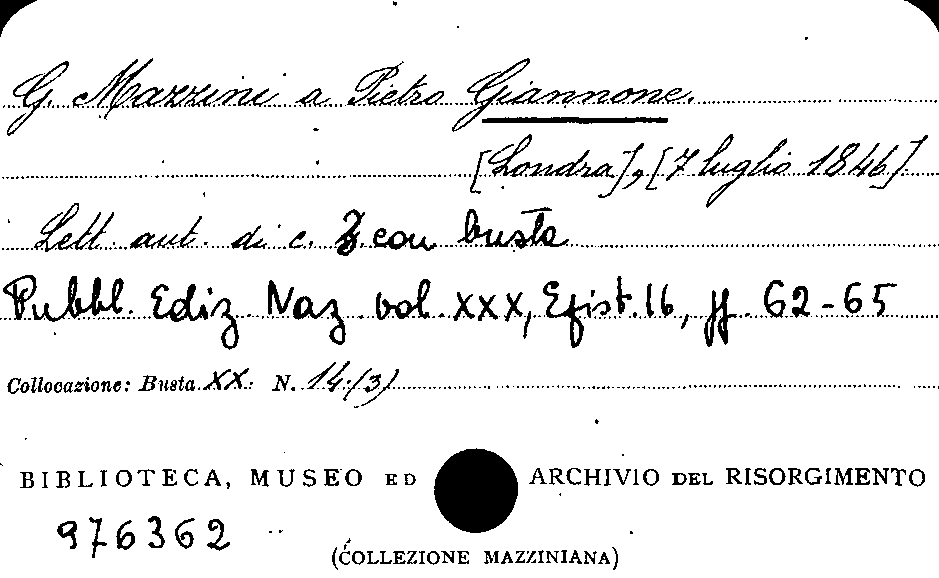 G. Mazzini a Pietro Giannone.
[Londra], [7 luglio 1846]
Lett. aut. di c. 2 con busta
Pubbl. Ediz. Naz. vol. XXX, Epist. 16, pp. 62-65
Collocazione: Busta XX. N. 14.(3)
BIBLIOTECA, MUSEO ED ARCHIVIO DEL RISORGIMENTO
976362
(COLLEZIONE MAZZINIANA)